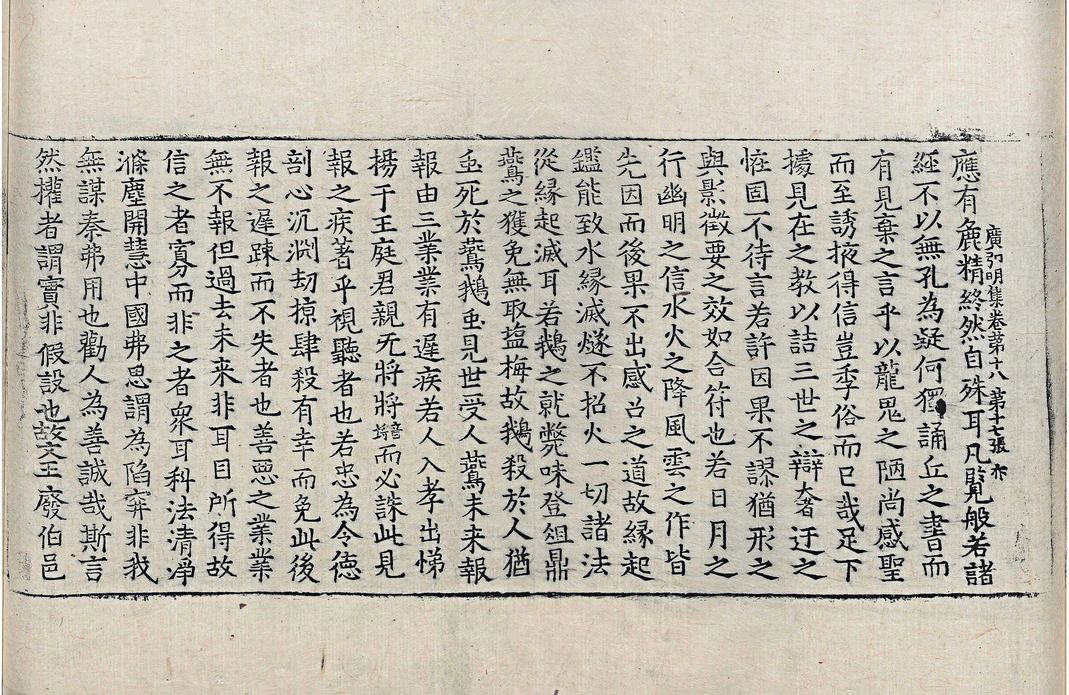 應有麁精終然自殊耳凡覽般若諸
廣弘明集卷第十八 第十七張 亦
經不以無孔為疑何獨誦丘之書而
有見棄之言乎以龍鬼之陋尚感聖
而至誘掖得信豈季俗而已哉足下
據見在之教以詰三世之辯奢迂之
恠固不待言若許因果不謬猶形之
與影徵要之效如合符也若日月之
行幽明之信水火之降風雲之作皆
先因而後果不出感召之道故緣起
鑑能致水緣滅燧不招火一切諸法
從緣起滅耳若鵝之就斃味登俎鼎
鷰之獲免無取盐梅故鵝殺於人猶
𧈧死於鷰鵝𧈧見世受人鷰未来報
報由三業業有遲疾若人入孝出悌
揚于王庭君親无將將而必誅此見
報之疾著乎視聽者也若忠為令德
剖心沉渕劫掠肆殺有幸而免此後
報之遲踈而不失者也善惡之業業
無不報但過去未来非耳目所得故
信之者寡而非之者衆耳科法清淨
滌塵開慧中國弗思謂為陷穽非我
無謀秦弗用也勸人為善誠哉斯言
然權者謂實非假設也故文王廢伯邑